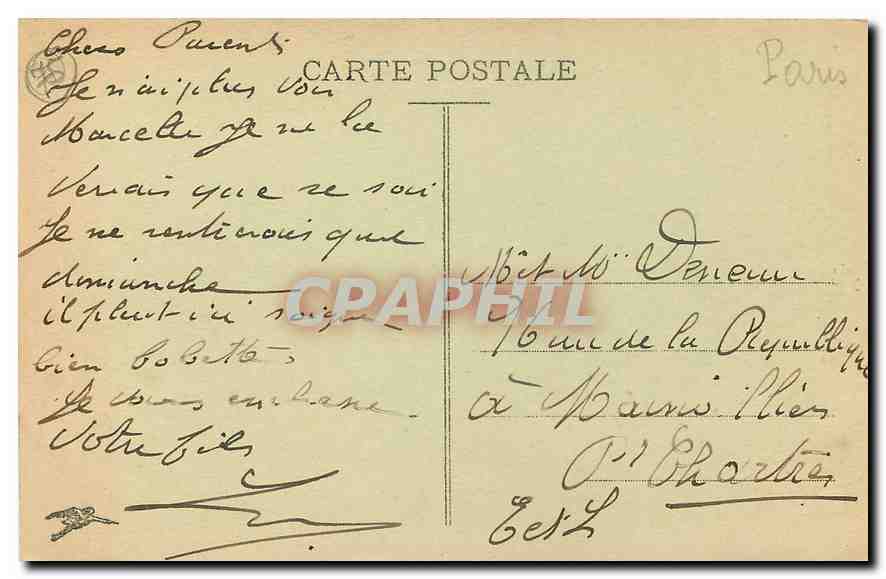 Chers Parents
Je n'ai plus vou
Marcelle je ne la
verrais que se soir
Je ne rentrerais que
dimanche
il pleut ici soigne
bien bobette
Je vous embrasse
Votre fils
CARTE POSTALE
Paris
Mr et Mme
Rue de la Republique
à Mainvilliers
Pr Chartres
E et L
CPAPHIL